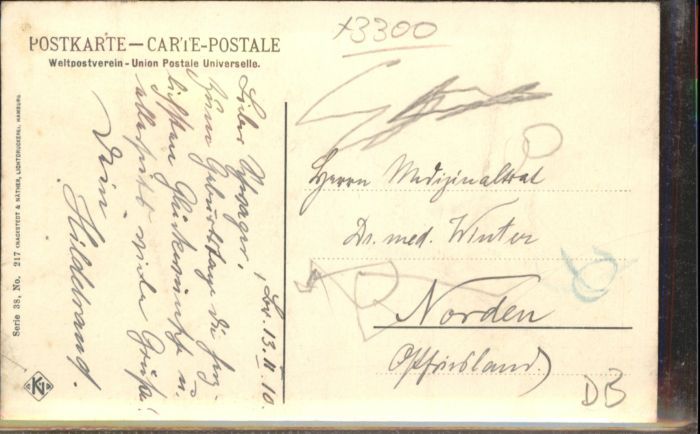 POSTKARTE — CARTE-POSTALE
Weltpostverein - Union Postale Universelle.
Serie 38, No. 217 (KNACKSTEDT & NÄTHER, LICHTDRUCKEREI, HAMBURG
Lieber Schwager,
Zum Geburtstage die herz-
lichsten Glückwünsche u.
allerseits viele Grüße!
Dein
Hildebrand.
13. II. 10.
+3300
Herrn Medizinalrat
Dr. med. Winter
Norden
Ostfriesland)
DB